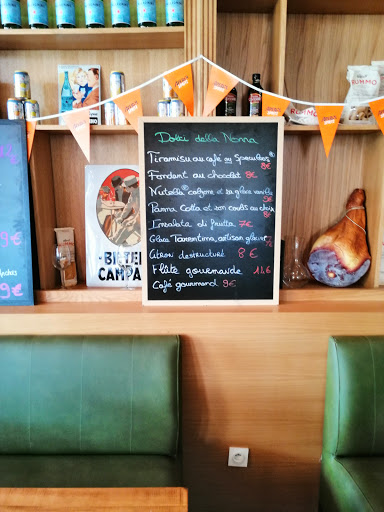 Dolci della Nonna
Tiramisu au café ou Speculoos®
8€
Fondant au chocolat 8€
Nutella® calzone et sa glace vanille
9€
Panna Cotta et son coulis au choix
8€
Insalata di frutta 7€
Glace Tarrentina, artisan glacier
Citron destructuré 8€
Flûte gourmande 14€
Café gourmand 9€
BITTER
CAMPA
RUMMO
9€
9€